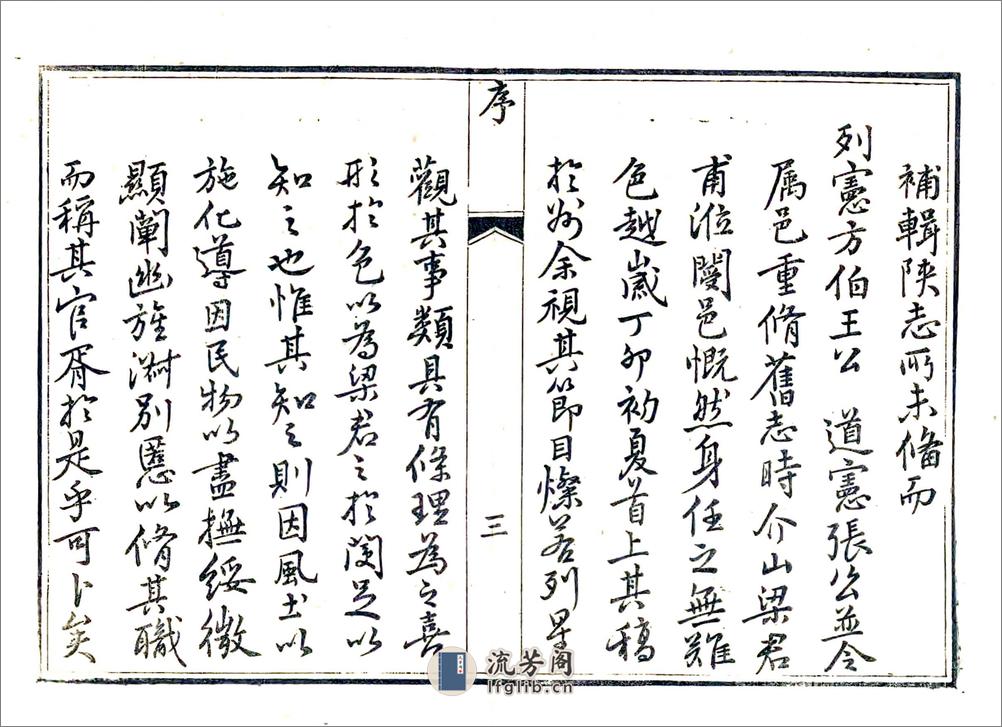 補輯陝志所未備而
列憲方伯王公 道憲張公並令
属邑重脩舊志時介山梁君
甫涖閿邑慨然身任之無難
色越歲丁卯初夏首上其稿
於州余視其節目燦若列星
序
三
觀其事類具有條理為之喜
形於色以為梁君之於閿足以
知之也惟其知之則因風土以
施化導因民物以盡撫綏微
顯闡幽旌淑別慝以脩其職
而稱其官胥於是乎可卜矣
流芳阁
lfglib.cn